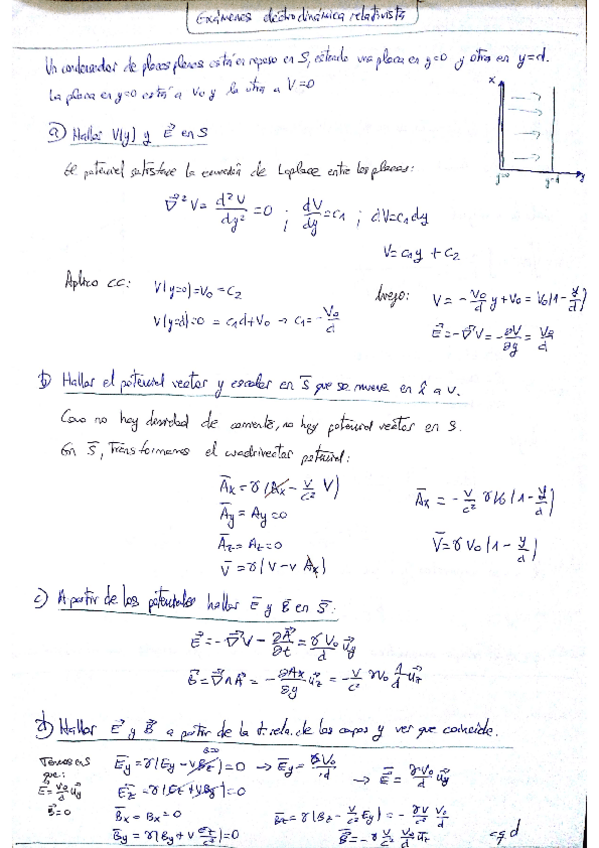 Exámenes electrodinámica relativista
Un condensador de placas planas está en reposo en S, estando una placa en y=0 y otra en y=d.
La placa en y=0 está a V₀ y la otra a V=0
x
y=0 y=d y
a) Hallar V(y) y E⃗ en S
El potencial satisface la ecuación de Laplace entre los planos:
∇⃗²V = d²V/dy² = 0 ; dV/dy = c₁ ; dV = c₁dy
V = c₁y + c₂
Aplico CC: V(y=0) = V₀ = c₂
V(y=d) = 0 = c₁d + V₀ → c₁ = -V₀/d
luego: V = -V₀/d y + V₀ = V₀(1 - y/d)
E⃗ = -∇⃗V = -∂V/∂y = V₀/d
b) Hallar el potencial vector y escalar en S̄ que se mueve en x̂ a v.
Como no hay densidad de corriente, no hay potencial vector en S.
En S̄, transformamos el cuadrivector potencial:
Āx = γ(Ax - v/c² V) Āx = -v/c² γV₀(1 - y/d)
Āy = Ay = 0
Āz = Az = 0 V̄ = γV₀(1 - y/d)
V̄ = γ(V - v Ax)
c) A partir de los potenciales hallar E⃗ y B⃗ en S̄:
E⃗ = -∇⃗V - ∂A⃗/∂t = γV₀/d u⃗y
B⃗ = ∇⃗∧A⃗ = -∂Ax/∂y u⃗z = -v/c² γV₀ 1/d u⃗z
d) Hallar E⃗ y B⃗ a partir de la t. rela. de los campos y ver que coincide.
Tenemos que:
E⃗ = V₀/d u⃗y
B⃗ = 0
Ēy = γ(Ey - vBz) = 0 → Ēy = γV₀/d → E⃗ = γV₀/d u⃗y
B=0
Ēz = γ(Ez + vBy) = 0
B̄x = Bx = 0 B̄z = γ(Bz - v/c² Ey) = -γv/c² V₀/d
B̄y = γ(By + v Ez/c²) = 0 B̄ = -γ v/c² V₀/d u⃗z
cqd